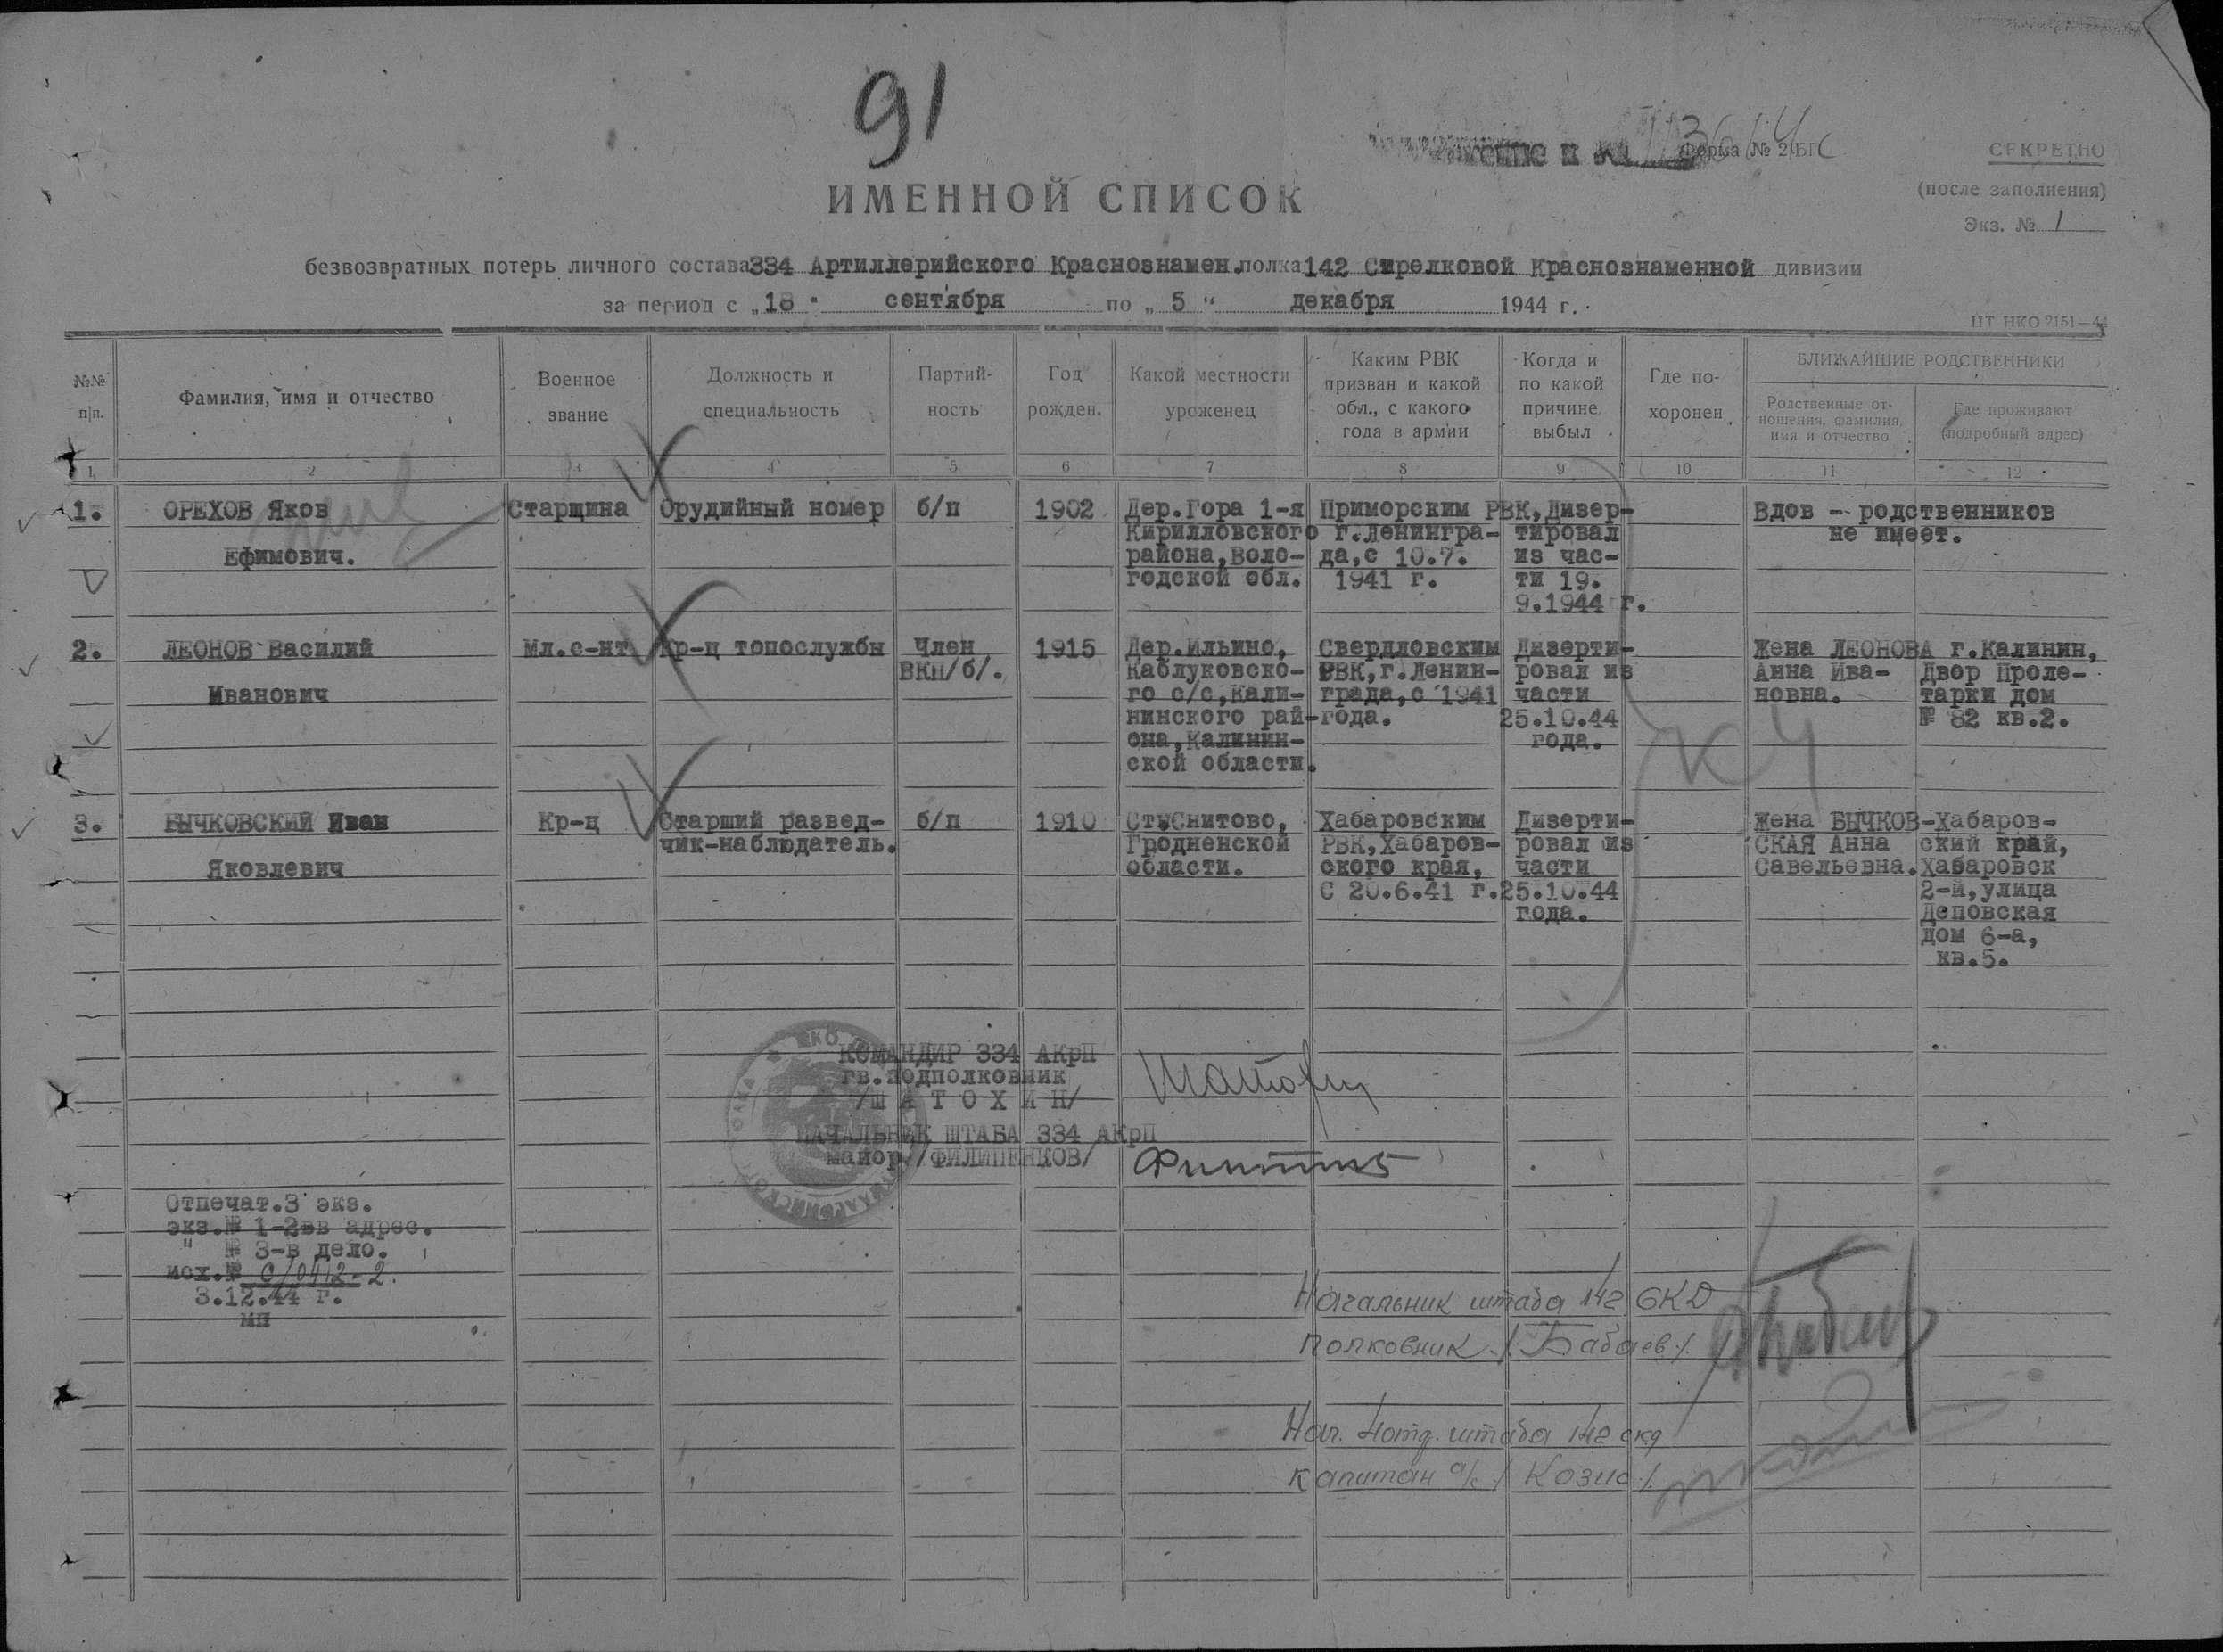 91
Форма № 2/БП
СЕКРЕТНО
(после заполнения)
Экз. № 1
ИМЕННОЙ СПИСОК
безвозвратных потерь личного состава 334 Артиллерийского Краснознамен. полка 142 Стрелковой Краснознаменной дивизии
за период с „18" сентября по „5" декабря 1944 г.
ЦТ НКО 2151—44
№№ п|п.
Фамилия, имя и отчество
Военное звание
Должность и специальность
Партий-
ность
Год рожден.
Какой местности уроженец
Каким РВК
призван и какой
обл., с какого
года в армии
Когда и
по какой
причине
выбыл
Где по-
хоронен
БЛИЖАЙШИЕ РОДСТВЕННИКИ
Родственные от-
ношения, фамилия,
имя и отчество
Где проживают
(подробный адрес)
1 2 3 4 5 6 7 8 9 10 11 12
1.
ОРЕХОВ Яков
Ефимович.
Старшина
Орудийный номер
б/п
1902
Дер.Гора 1-я
Кирилловского
района,Воло-
годской обл.
Приморским РВК,
г.Ленингра-
да,с 10.7.
1941 г.
Дизер-
тировал
из час-
ти 19.
9.1944 г.
Вдов - родственников
не имеет.
2.
ЛЕОНОВ Василий
Иванович
Мл.с-нт
Кр-ц топослужбы
Член
ВКП/б/.
1915
Дер.Ильино,
Каблуковско-
го с/с,Кали-
нинского рай-
она,Калинин-
ской области.
Свердловским
РВК,г.Ленин-
града,с 1941
года.
Дизерти-
ровал из
части
25.10.44
года.
Жена ЛЕОНОВА
Анна Ива-
новна.
г.Калинин,
Двор Проле-
тарки дом
№ 82 кв.2.
3.
БЫЧКОВСКИЙ Иван
Яковлевич
Кр-ц
Старший развед-
чик-наблюдатель.
б/п
1910
Ст.Снитово,
Гродненской
области.
Хабаровским
РВК,Хабаров-
ского края,
С 20.6.41 г.
Дизерти-
ровал из
части
25.10.44
года.
Жена БЫЧКОВ-
СКАЯ Анна
Савельевна.
Хабаров-
ский край,
Хабаровск
2-й,улица
Деповская
дом 6-а,
кв.5.
КОМАНДИР 334 АКрП
гв.подполковник
/Ш А Т О Х И Н/
НАЧАЛЬНИК ШТАБА 334 АКрП
майор /ФИЛИПЕНКОВ/
Отпечат.3 экз.
экз.№ 1-2 в адрес.
" № 3-в дело.
исх.№ с/0412-2.
3.12.44 г.
мп
Начальник штаба 142 СКД
полковник /Бабаев/.
Нач. 4 отд. штаба 142 скд
капитан а/с /Козис/.